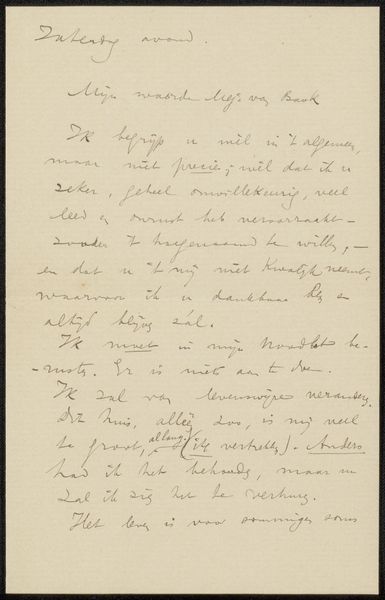 Zaterdag avond.
Mijn waarde Mej. van
Ik begrijp u wel in 't algemeen,
maar niet precies; wel dat ik u
zeker, geheel onwillekeurig, veel
leed en onrust heb veroorzaakt –
zonder 't hoegenaamd te willen, –
en dat u 't mij niet kwalijk neemt,
waarvoor ik u dankbaar ben en
altijd blijven zal.
Ik moet in mijn noodlot be-
rusten. Er is niets aan te doen.
Ik zal van levenswijze veranderen.
Dit huis, alleen zoo, is mij veel
te groot, (ik vertrek). Anders
had ik het behouden, maar nu
zal ik zien het te verhuren.
Het leven is voor sommigen soms